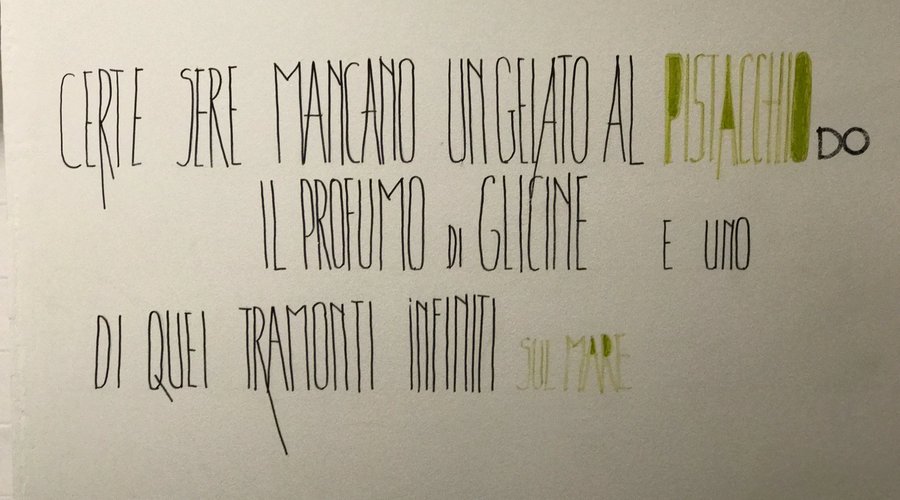 CERTE SERE MANCANO UN GELATO AL PISTACCHIO DO
IL PROFUMO DI GLICINE E UNO
DI QUEI TRAMONTI INFINITI SUL MARE